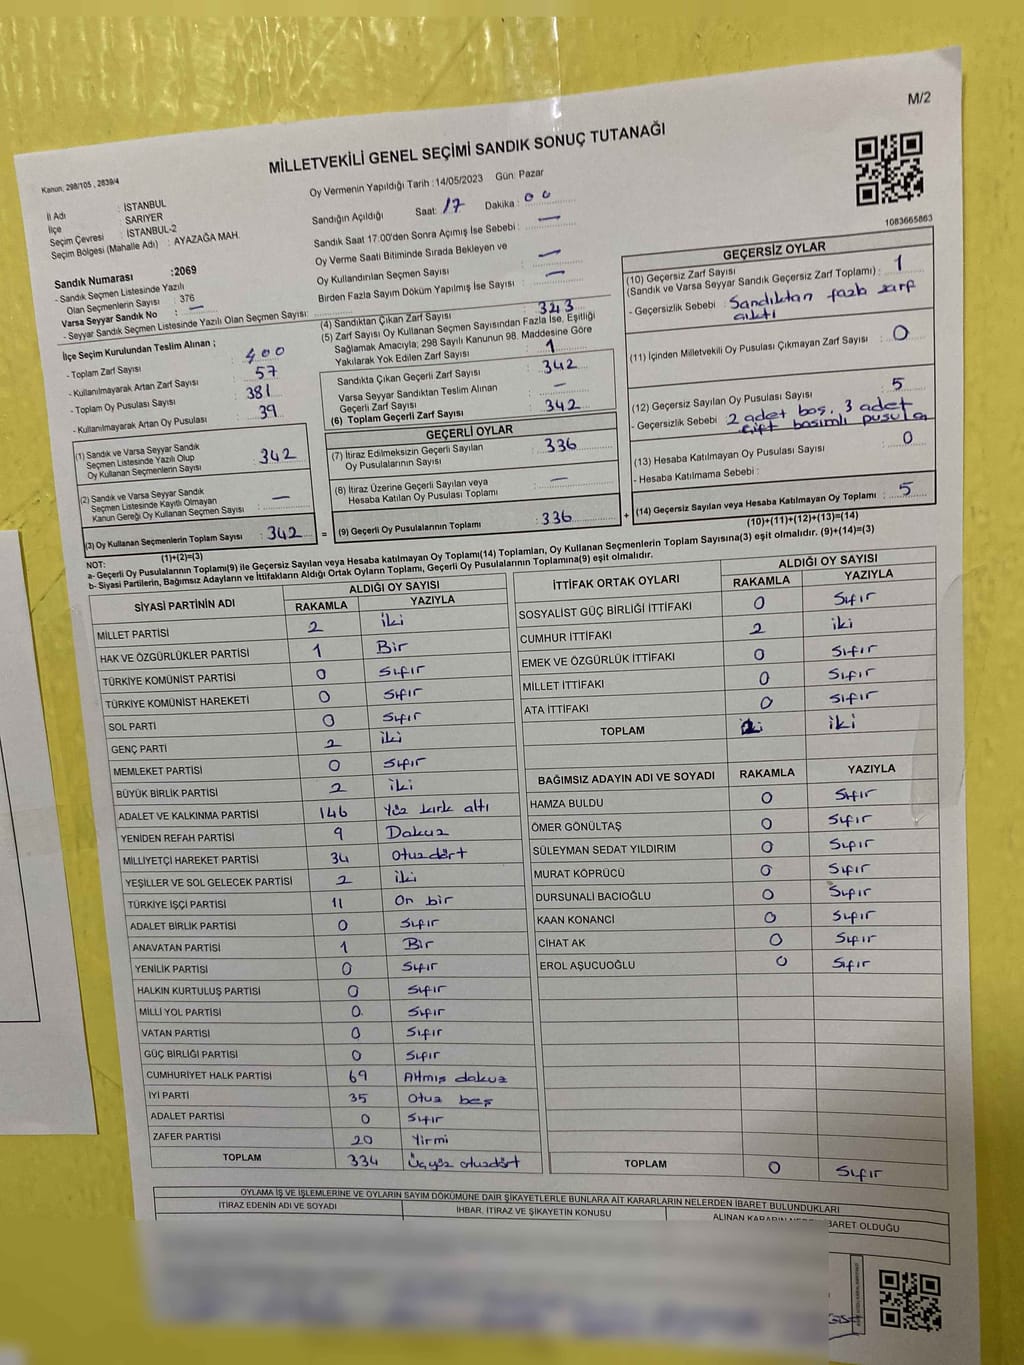 M/2
MİLLETVEKİLİ GENEL SEÇİMİ SANDIK SONUÇ TUTANAĞI
Kanun: 298/105 , 2839/4
Oy Vermenin Yapıldığı Tarih : 14/05/2023 Gün: Pazar
İl Adı : İSTANBUL
İlçe : SARIYER
Seçim Çevresi : İSTANBUL-2
Seçim Bölgesi (Mahalle Adı) : AYAZAĞA MAH.
Sandığın Açıldığı Saat: 17 Dakika : 00
Sandık Saat 17:00'den Sonra Açımış İse Sebebi : —
Oy Verme Saati Bitiminde Sırada Bekleyen ve
Oy Kullandırılan Seçmen Sayısı : —
Birden Fazla Sayım Döküm Yapılmış İse Sayısı : —
1083665863
Sandık Numarası :2069
- Sandık Seçmen Listesinde Yazılı
Olan Seçmenlerin Sayısı : 376
Varsa Seyyar Sandık No : —
- Seyyar Sandık Seçmen Listesinde Yazılı Olan Seçmen Sayısı :
İlçe Seçim Kurulundan Teslim Alınan ;
- Toplam Zarf Sayısı : 400
- Kullanılmayarak Artan Zarf Sayısı : 57
- Toplam Oy Pusulası Sayısı : 381
- Kullanılmayarak Artan Oy Pusulası : 39
(1) Sandık ve Varsa Seyyar Sandık
Seçmen Listesinde Yazılı Olup
Oy Kullanan Seçmenlerin Sayısı : 342
(2) Sandık ve Varsa Seyyar Sandık
Seçmen Listesinde Kayıtlı Olmayan
Kanun Gereği Oy Kullanan Seçmen Sayısı : —
(3) Oy Kullanan Seçmenlerin Toplam Sayısı : 342
(1)+(2)=(3)
(4) Sandıktan Çıkan Zarf Sayısı : 343
(5) Zarf Sayısı Oy Kullanan Seçmen Sayısından Fazla İse, Eşitliği
Sağlamak Amacıyla; 298 Sayılı Kanunun 98. Maddesine Göre
Yakılarak Yok Edilen Zarf Sayısı : 1
Sandıkta Çıkan Geçerli Zarf Sayısı : 342
Varsa Seyyar Sandıktan Teslim Alınan
Geçerli Zarf Sayısı : —
(6) Toplam Geçerli Zarf Sayısı : 342
GEÇERLİ OYLAR
(7) İtiraz Edilmeksizin Geçerli Sayılan
Oy Pusulalarının Sayısı : 336
(8) İtiraz Üzerine Geçerli Sayılan veya
Hesaba Katılan Oy Pusulası Toplamı : —
= (9) Geçerli Oy Pusulalarının Toplamı : 336 +
GEÇERSİZ OYLAR
(10) Geçersiz Zarf Sayısı
(Sandık ve Varsa Seyyar Sandık Geçersiz Zarf Toplamı) : 1
- Geçersizlik Sebebi : Sandıktan fazla zarf
çıktı
(11) İçinden Milletvekili Oy Pusulası Çıkmayan Zarf Sayısı : 0
(12) Geçersiz Sayılan Oy Pusulası Sayısı : 5
- Geçersizlik Sebebi : 2 adet boş. 3 adet
çift basımlı pusula
(13) Hesaba Katılmayan Oy Pusulası Sayısı : 0
- Hesaba Katılmama Sebebi :
(14) Geçersiz Sayılan veya Hesaba Katılmayan Oy Toplamı : 5
(10)+(11)+(12)+(13)=(14)
NOT:
a- Geçerli Oy Pusulalarının Toplamı(9) ile Geçersiz Sayılan veya Hesaba katılmayan Oy Toplamı(14) Toplamları, Oy Kullanan Seçmenlerin Toplam Sayısına(3) eşit olmalıdır. (9)+(14)=(3)
b- Siyasi Partilerin, Bağımsız Adayların ve İttifakların Aldığı Ortak Oyların Toplamı, Geçerli Oy Pusulalarının Toplamına(9) eşit olmalıdır.
SİYASİ PARTİNİN ADI ALDIĞI OY SAYISI
RAKAMLA YAZIYLA
MİLLET PARTİSİ 2 iki
HAK VE ÖZGÜRLÜKLER PARTİSİ 1 Bir
TÜRKİYE KOMÜNİST PARTİSİ 0 Sıfır
TÜRKİYE KOMÜNİST HAREKETİ 0 Sıfır
SOL PARTİ 0 Sıfır
GENÇ PARTİ 2 iki
MEMLEKET PARTİSİ 0 Sıfır
BÜYÜK BİRLİK PARTİSİ 2 iki
ADALET VE KALKINMA PARTİSİ 146 Yüz kırk altı
YENİDEN REFAH PARTİSİ 9 Dokuz
MİLLİYETÇİ HAREKET PARTİSİ 34 Otuzdört
YEŞİLLER VE SOL GELECEK PARTİSİ 2 iki
TÜRKİYE İŞÇİ PARTİSİ 11 On bir
ADALET BİRLİK PARTİSİ 0 Sıfır
ANAVATAN PARTİSİ 1 Bir
YENİLİK PARTİSİ 0 Sıfır
HALKIN KURTULUŞ PARTİSİ 0 Sıfır
MİLLİ YOL PARTİSİ 0 Sıfır
VATAN PARTİSİ 0 Sıfır
GÜÇ BİRLİĞİ PARTİSİ 0 Sıfır
CUMHURİYET HALK PARTİSİ 69 Altmış dokuz
İYİ PARTİ 35 Otuz beş
ADALET PARTİSİ 0 Sıfır
ZAFER PARTİSİ 20 Yirmi
TOPLAM 334 Üçyüz otuzdört
İTTİFAK ORTAK OYLARI ALDIĞI OY SAYISI
RAKAMLA YAZIYLA
SOSYALİST GÜÇ BİRLİĞİ İTTİFAKI 0 Sıfır
CUMHUR İTTİFAKI 2 iki
EMEK VE ÖZGÜRLÜK İTTİFAKI 0 Sıfır
MİLLET İTTİFAKI 0 Sıfır
ATA İTTİFAKI 0 Sıfır
TOPLAM iki
BAĞIMSIZ ADAYIN ADI VE SOYADI RAKAMLA YAZIYLA
HAMZA BULDU 0 Sıfır
ÖMER GÖNÜLTAŞ 0 Sıfır
SÜLEYMAN SEDAT YILDIRIM 0 Sıfır
MURAT KÖPRÜCÜ 0 Sıfır
DURSUNALİ BACIOĞLU 0 Sıfır
KAAN KONANCİ 0 Sıfır
CİHAT AK 0 Sıfır
EROL AŞUCUOĞLU 0 Sıfır
TOPLAM 0 Sıfır
OYLAMA İŞ VE İŞLEMLERİNE VE OYLARIN SAYIM DÖKÜMÜNE DAİR ŞİKAYETLERLE BUNLARA AİT KARARLARIN NELERDEN İBARET BULUNDUKLARI
İTİRAZ EDENİN ADI VE SOYADI İHBAR, İTİRAZ VE ŞİKAYETİN KONUSU ALINAN KARARIN NEDEN İBARET OLDUĞU